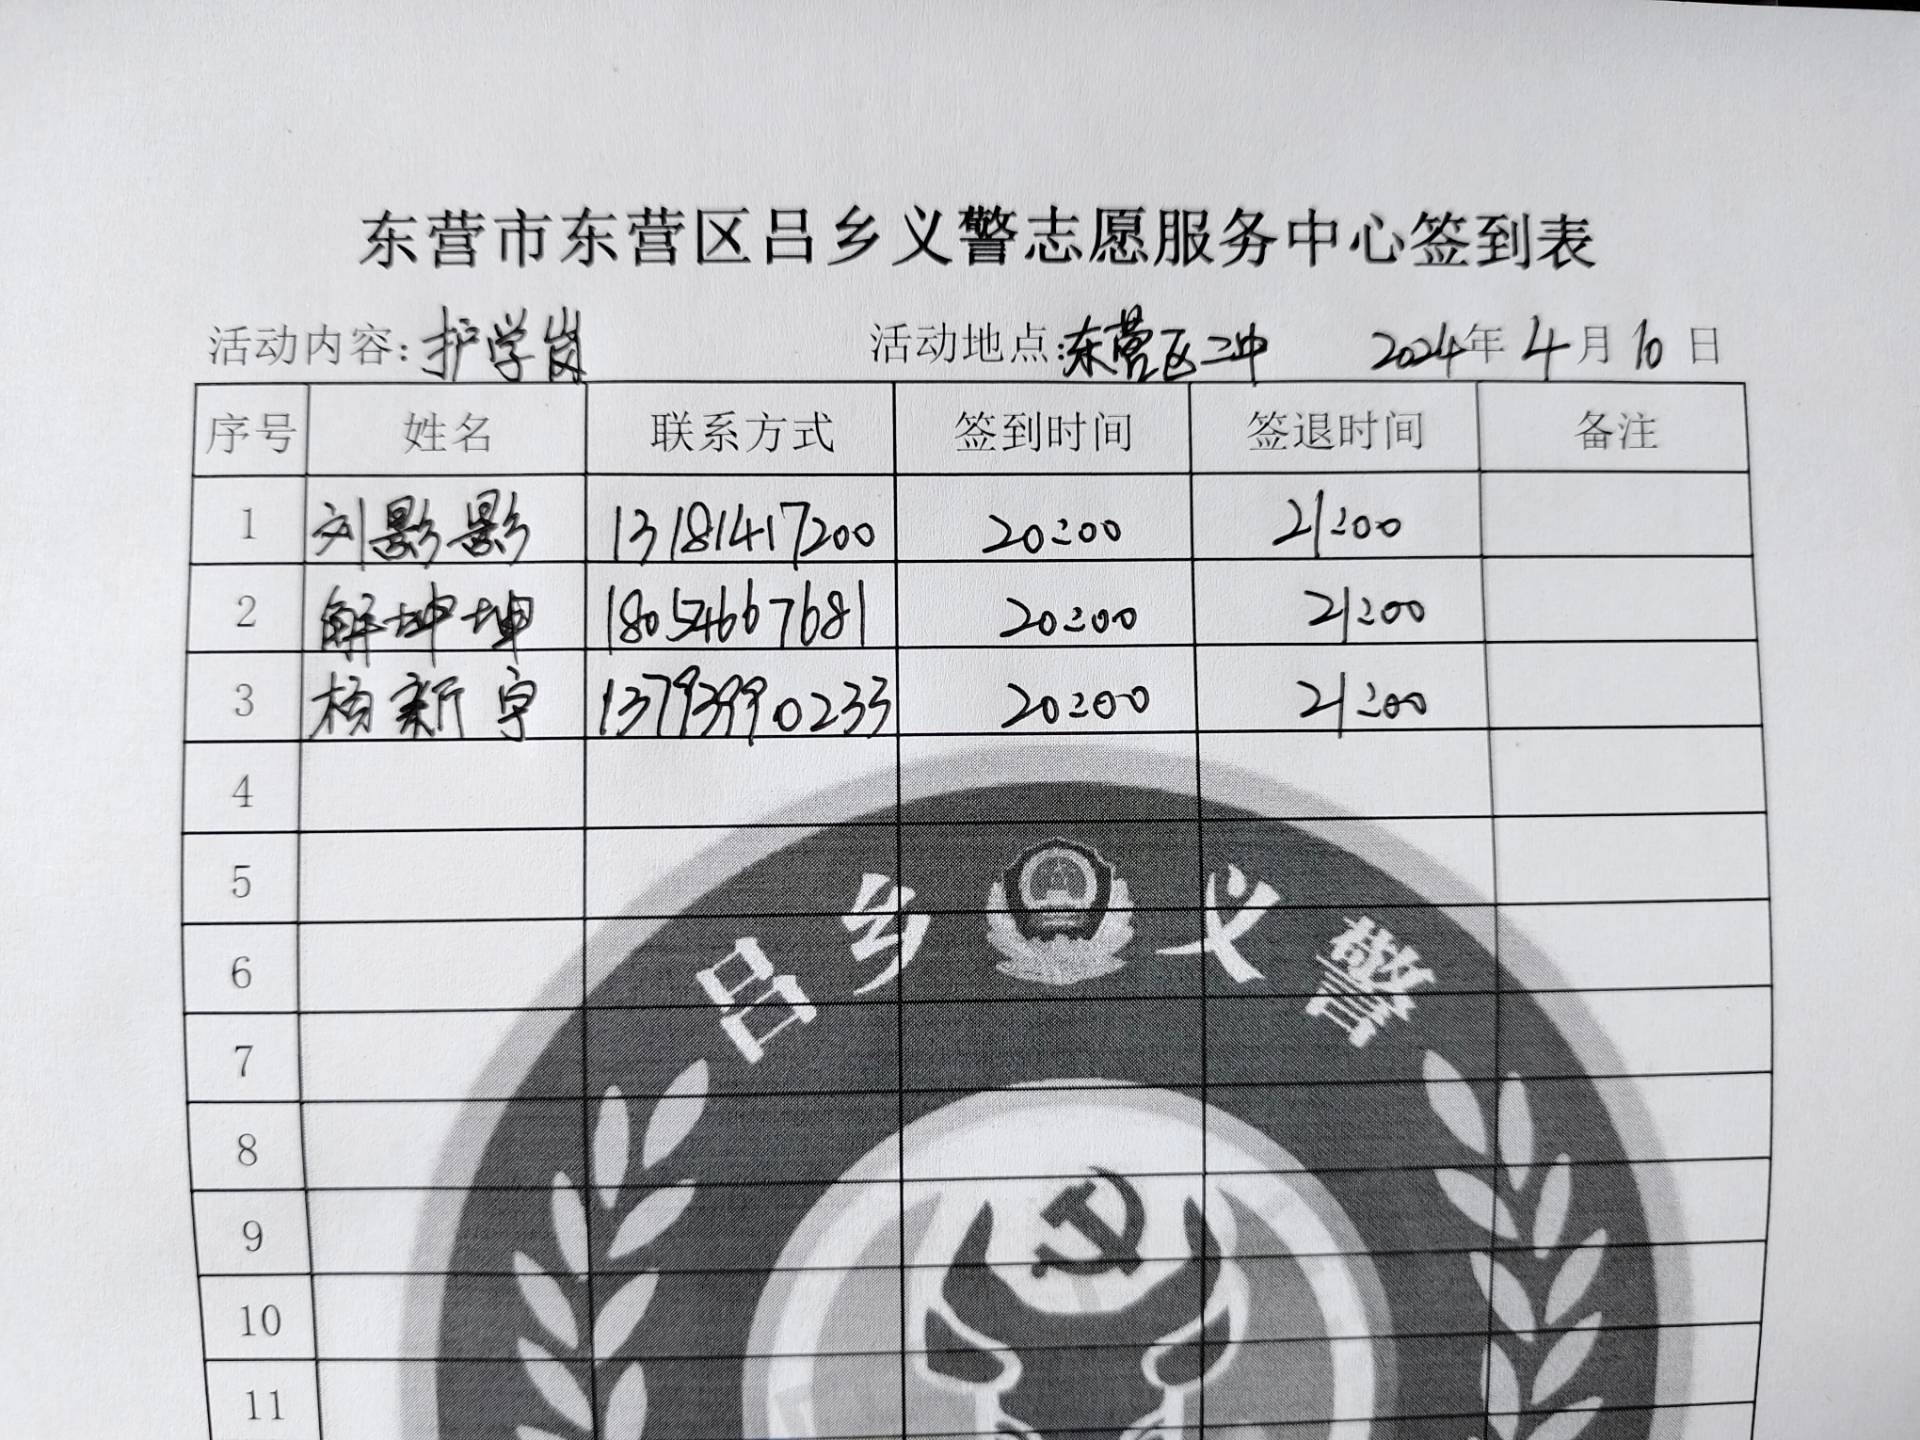 东营市东营区吕乡义警志愿服务中心签到表
活动内容:护学岗 活动地点:东营区二中 2024年4月10日
序号 姓名 联系方式 签到时间 签退时间 备注
1 刘影影 13181417200 20:00 21:00
2 解坤坤 18054667681 20:00 21:00
3 杨新宇 13793990233 20:00 21:00
4
5
6
7
8
9
10
11
吕乡义警